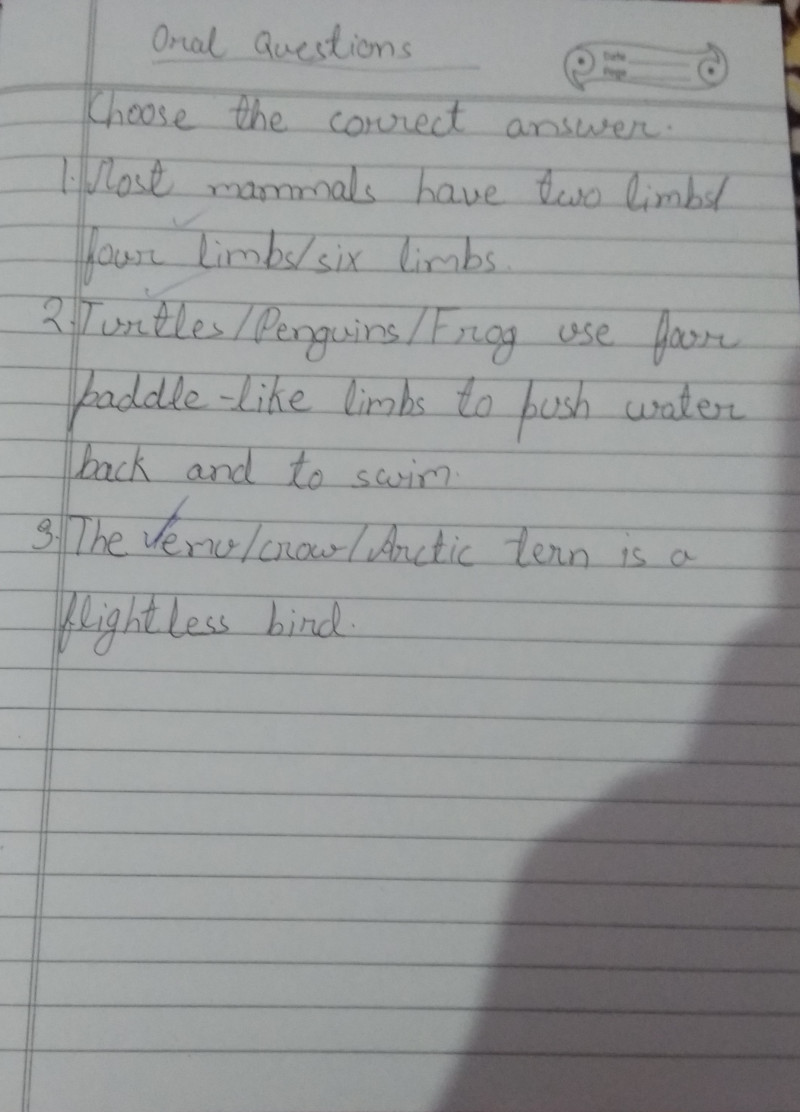 Oral Questions
Date
Page
Choose the correct answer.
1. Most mammals have two limbs/
four limbs/six limbs.
2. Turtles/Penguins/Frog use four
paddle-like limbs to push water
back and to swim.
3. The emu/crow/Arctic tern is a
flightless bird.